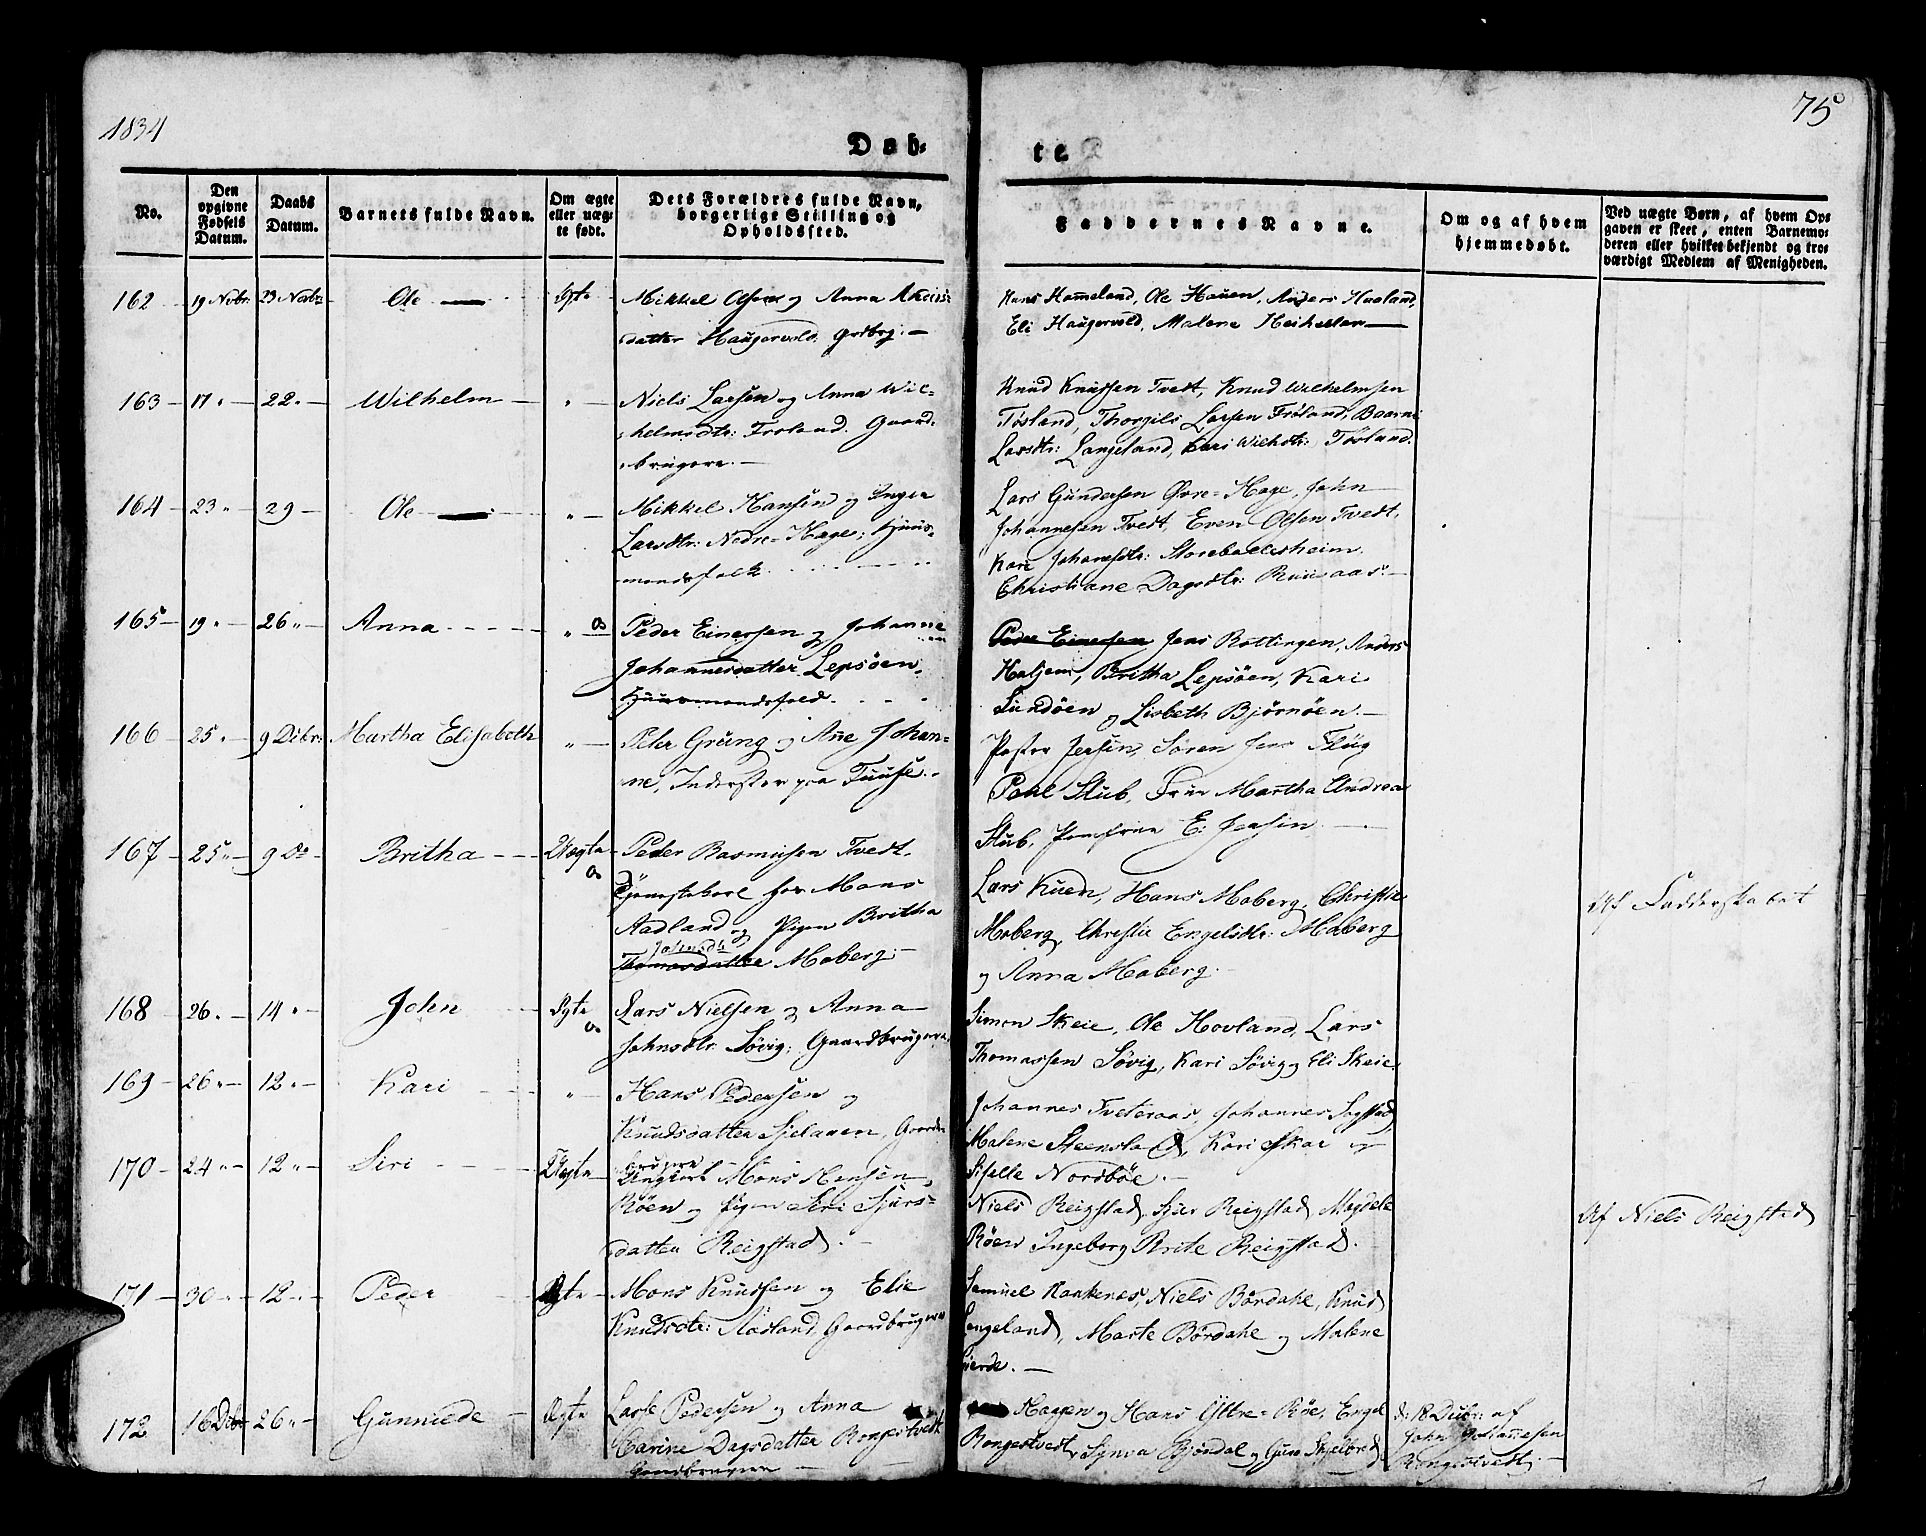 1834
75
Døb-
te.
No.
Den opgivne Fødsels Datum.
Daabs Datum.
Barnets fulde Navn.
Om ægte eller uægte født.
Dets Forældres fulde Navn, borgerlige Stilling og Opholdssted.
Faddernes Navne.
Om og af hvem hjemmedøbt.
Ved uægte Børn, af hvem Opgaven er skeet, enten Barnemoderen eller hvilket bekjendt og troværdigt Medlem af Menigheden.
162 19 Novbr: 23 Novbr: Ole Ægte Mikkel Olsen og Anna
datter Haugervold. Grdbrg:
Hans Hameland, Ole Hauen, Anders Haaland,
Eli Haugervold, Malene
163 17 " 22 " Wilhelm " Niels Larsen og Anna Wil-
helmsdtr: Frøland. Gaard-
brugere.
Knud Knussen Tvedt, Knud Wilhelmsen
Tøsland, Thorgils Larsen Frøland, Baarni
Larsdtr: Langeland, Kari Wilhdtr: Tøsland.
164 23 " 29 Ole " Mikkel Hansen og Inger
Larsdtr: Nedre-Hage, Huus-
mandsfolk.
Lars Gundersen Øvre-Hage, John
Johannesen Tvedt, Even Olsen Tvedt,
Kari Johansdtr: Storebaelesheim
Christiane Dagsdtr:
165 19 " 26 " Anna " Peder Einersen og Johanne
Johannesdatter Lepsøen,
Huusmandsfolk.
Peder Einersen Jens Rottingen, Anders
Haljem, Britha Lepsøen, Kari
Sundøen og Lisbeth Bjørnøen.
166 25 " 9 Dcbr: Martha Elisabeth " Peter Grung og Ane Johan-
ne, Inderster paa Fuuse.
Pastor Jersin, Søren Jens Flüg
Pohl Stub, Frue Martha Andrea
Stub, Jomfrue E: Jersin.
167 25 " 9 Do Britha Uægte Peder Rasmussen Tvedt.
Tjenestekarl for Mons
Aadland og Pigen Britha
Johnsdtr
Thomasdatter Moberg.
Lars Kuen, Hans Moberg, Christie
Moberg, Christie Engelsdtr: Moberg
og Anna Moberg.
Af Fadderskabet
168 26 " 14 " John Ægte Lars Nielsen og Anna
Johnsdtr Søvig; Gaardbrugere,
Simon Skeie, Ole Hovland, Lars
Thomassen Søvig, Kari Søvig og Eli Skeie.
169 26 " 12 " Kari " Hans Pedersen og
Knudsdatter Sjelaaen, Gaard-
brugere
Johannes Tveteraas, Johannes Sogstad,
Malene Steensland, Kari Skar og
Nordbøe.
170 24 " 12 " Siri Uægte Ungkarl Mons Monsen
Røen og Pigen Siri Sjurs-
datter Reigstad.
Niels Reigstad, Sjur Reigstad, Magdele
Røen Ingeborg Brite Reigstad.
Af Niels Reigstad
171 30 " 12 " Peder Ægte Mons Knudsen og Elie
Knudsdtr: Aadland, Gaardbrugere
Samuel Haukenes, Niels Børdahl, Knud
Langeland, Marte Børdahl og Malene
172 16 Dcbr 26 " Gunnilde Ægte Lasse Pedersen og Anna
Carine Dagsdatter Rongestvedt
Gaardbrugere
Haggen og Hans Yttre-Røe, Engel
Rongestvedt, Synva Bjørdal og Guro
d: 18 Dcbr: af
John Johannesen
Rongestvedt.